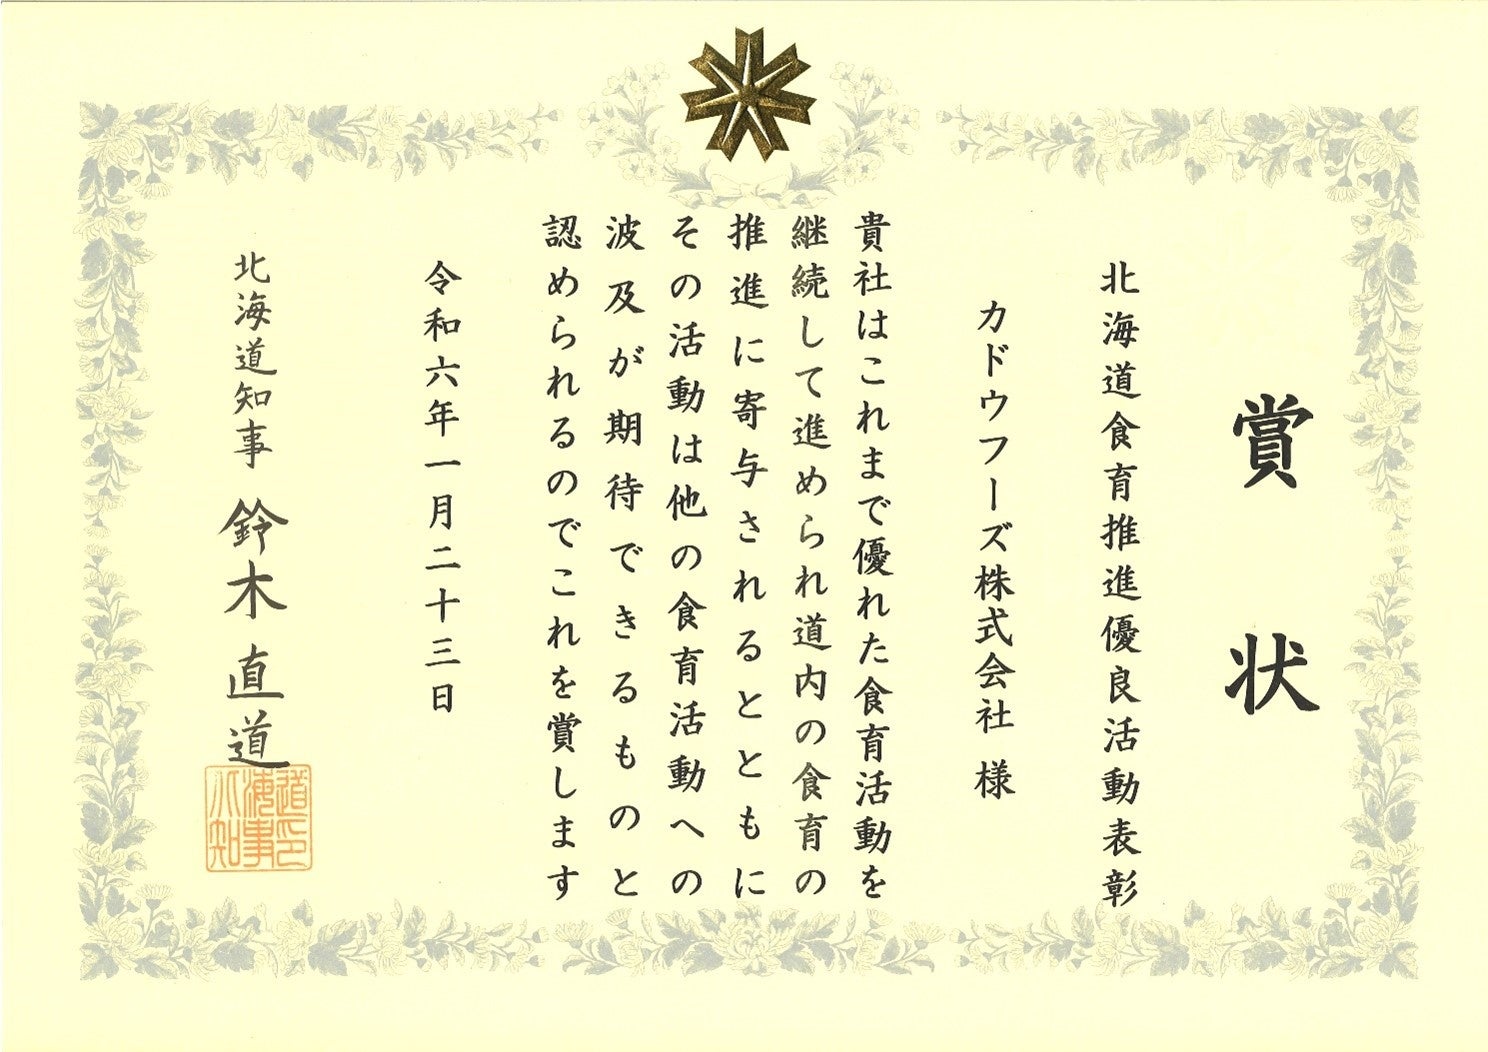 賞状
北海道食育推進優良活動表彰
カドウフーズ株式会社 様
貴社はこれまで優れた食育活動を
継続して進められ道内の食育の
推進に寄与されるとともに
その活動は他の食育活動への
波及が期待できるものと
認められるのでこれを賞します
令和六年一月二十三日
北海道知事 鈴木直道
北海道知事印